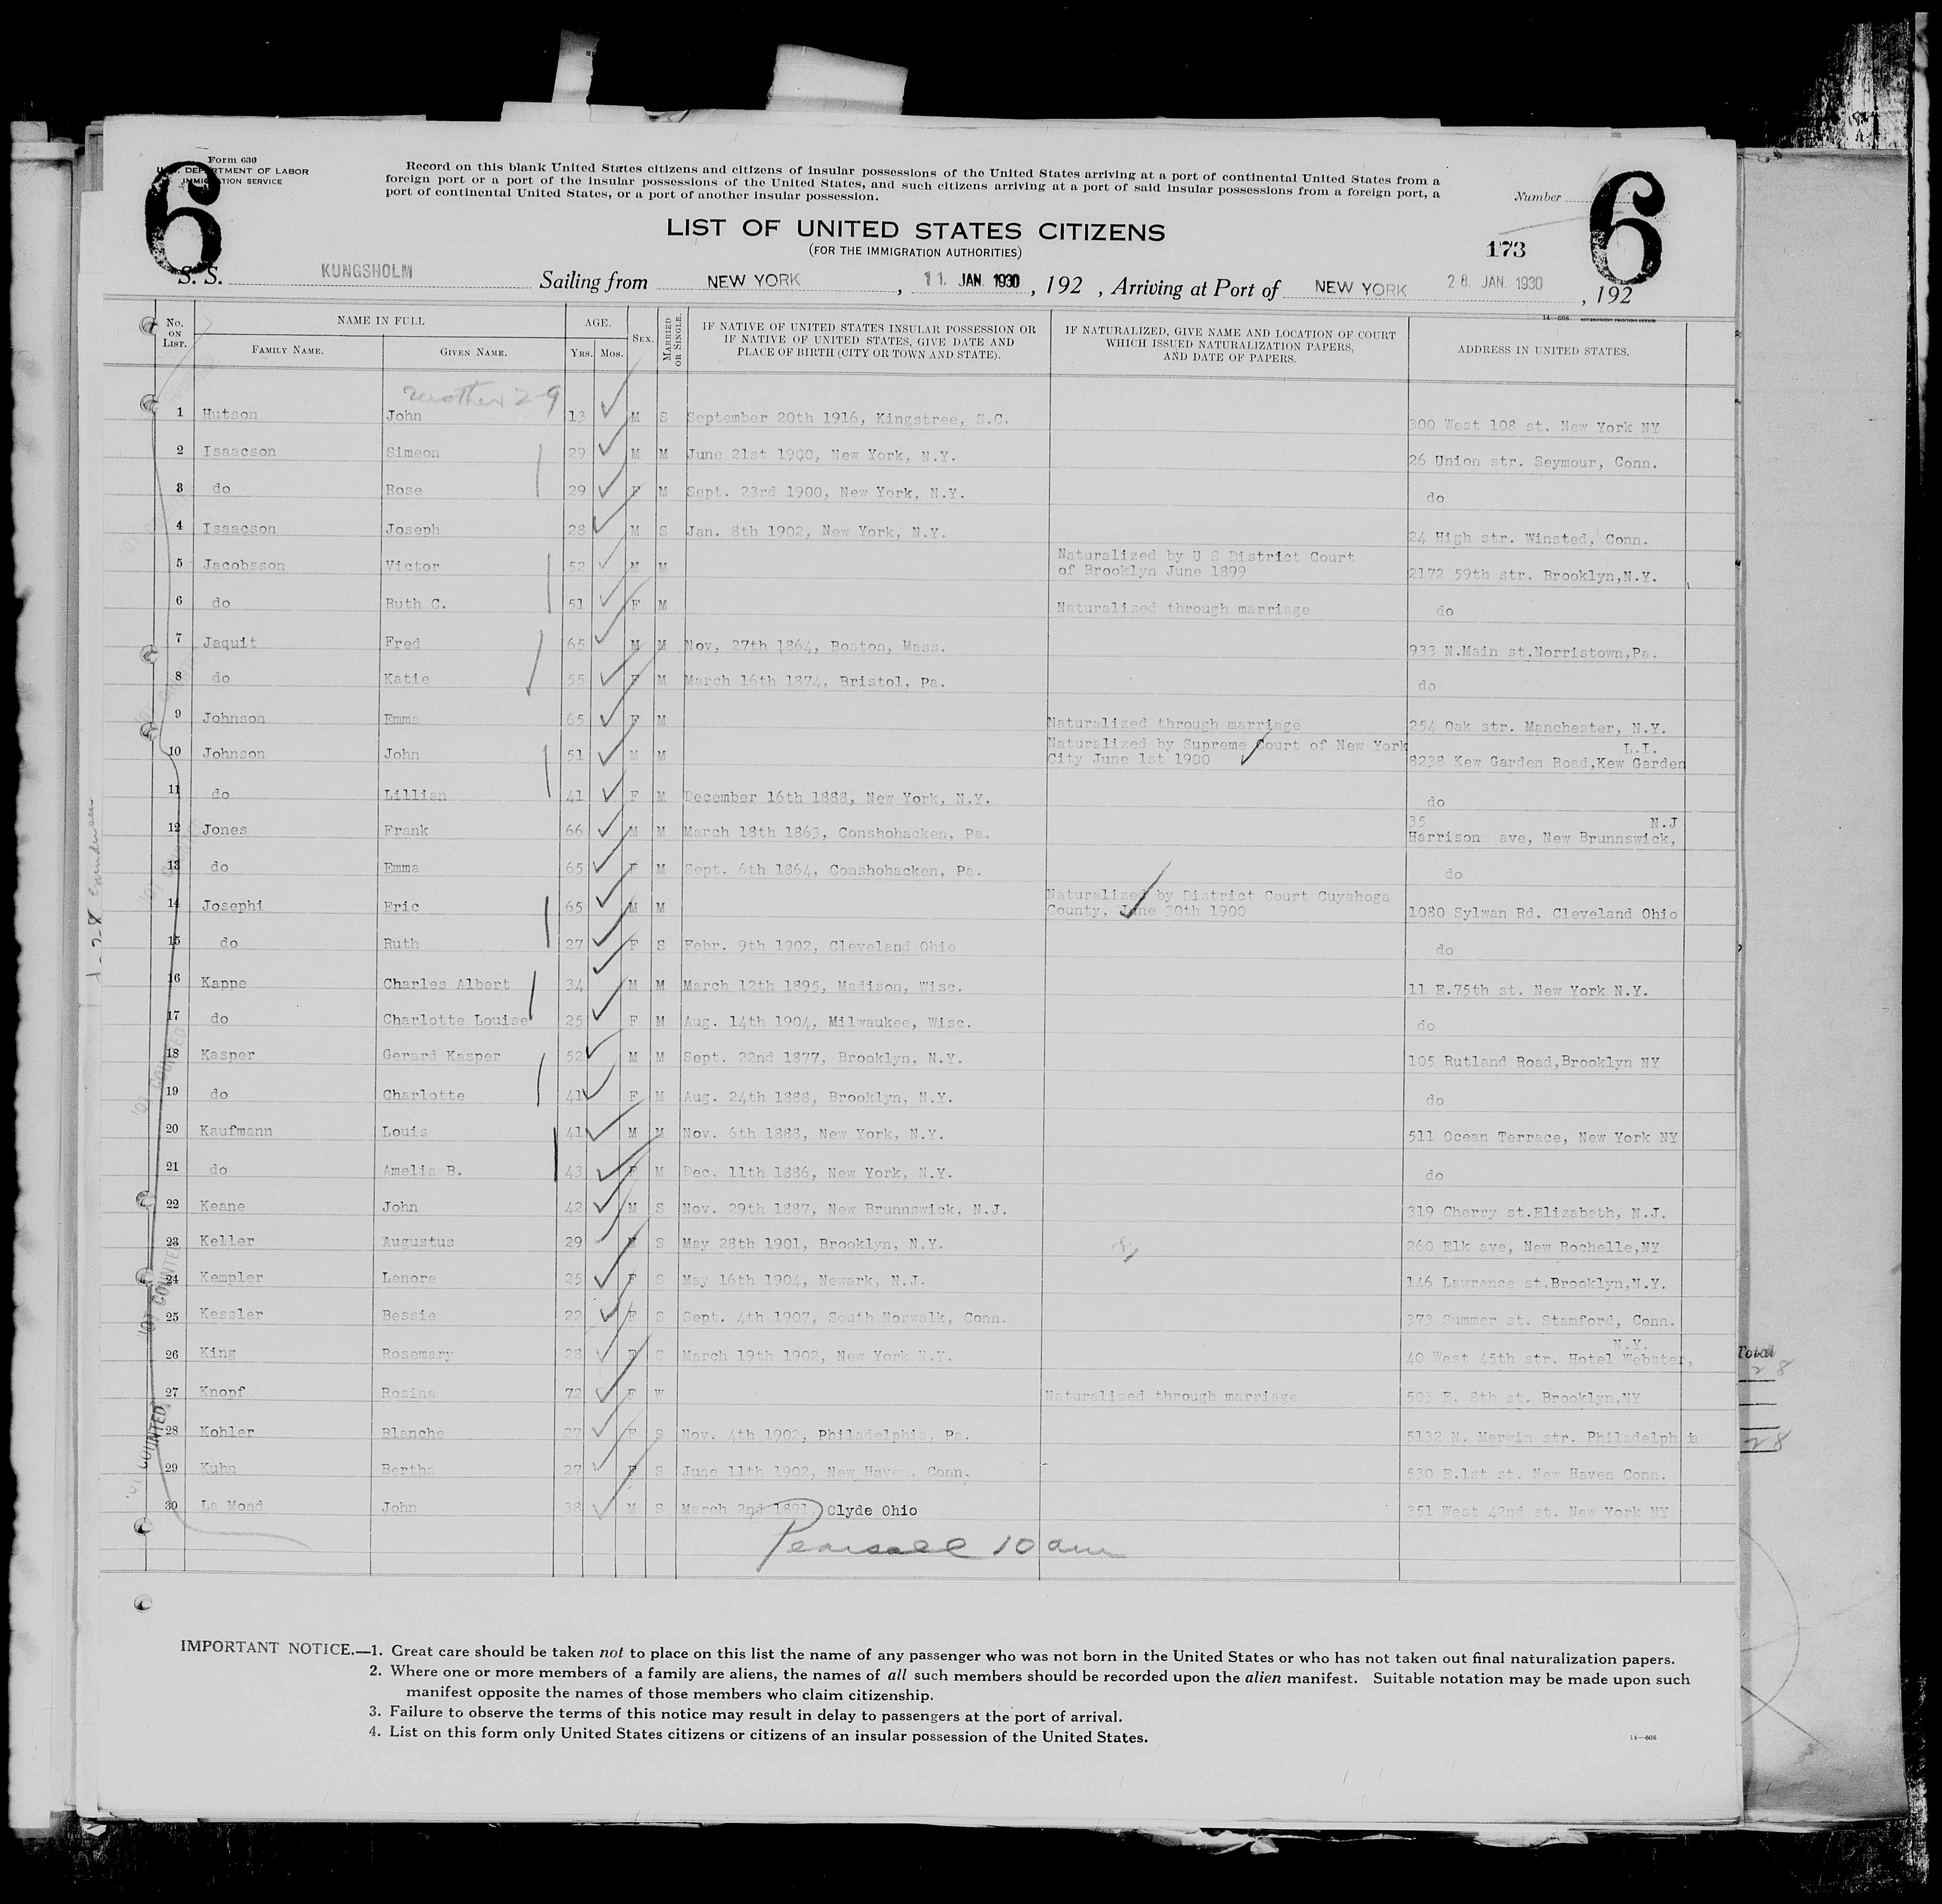 Form 630
U. S. DEPARTMENT OF LABOR
IMMIGRATION SERVICE
6
Record on this blank United States citizens and citizens of insular possessions of the United States arriving at a port of continental United States from a
foreign port or a port of the insular possessions of the United States, and such citizens arriving at a port of said insular possessions from a foreign port, a
port of continental United States, or a port of another insular possession.
Number
6
LIST OF UNITED STATES CITIZENS
(FOR THE IMMIGRATION AUTHORITIES)
173
S. S. KUNGSHOLM Sailing from NEW YORK, 11. JAN. 1930, 192 , Arriving at Port of NEW YORK 28. JAN. 1930, 192
14—608 GOVERNMENT PRINTING OFFICE
No. ON LIST. NAME IN FULL AGE. SEX. MARRIED OR SINGLE. IF NATIVE OF UNITED STATES INSULAR POSSESSION OR IF NATIVE OF UNITED STATES, GIVE DATE AND PLACE OF BIRTH (CITY OR TOWN AND STATE). IF NATURALIZED, GIVE NAME AND LOCATION OF COURT WHICH ISSUED NATURALIZATION PAPERS, AND DATE OF PAPERS. ADDRESS IN UNITED STATES.
FAMILY NAME. GIVEN NAME. YRS. MOS.
mother 2-9
1 Hutson John 13 M S September 20th 1916, Kingstree, S.C. 300 West 108 st. New York NY
2 Isaacson Simeon 29 M M June 21st 1900, New York, N.Y. 26 Union str. Seymour, Conn.
3 do Rose 29 F M Sept. 23rd 1900, New York, N.Y. do
4 Isaacson Joseph 28 M S Jan. 8th 1902, New York, N.Y. 24 High str. Winsted, Conn.
5 Jacobsson Victor 52 M M Naturalized by U S District Court of Brooklyn June 1899 2172 59th str. Brooklyn,N.Y.
6 do Ruth C. 51 F M Naturalized through marriage do
7 Jaquit Fred 65 M M Nov, 27th 1864, Boston, Mass. 933 N.Main st.Norristown,Pa.
8 do Katie 55 F M March 16th 1874, Bristol, Pa. do
9 Johnson Emma 65 F M Naturalized through marriage 254 Oak str. Manchester, N.Y.
10 Johnson John 51 M M Naturalized by Supreme Court of New York City June 1st 1900 8238 Kew Garden Road,Kew Garden L.I.
11 do Lillian 41 F M December 16th 1888, New York, N.Y. do
12 Jones Frank 66 M M March 18th 1863, Conshohacken, Pa. 35 Harrison ave, New Brunnswick, N.J
13 do Emma 65 F M Sept. 6th 1864, Conshohacken, Pa. do
14 Josephi Eric 65 M M Naturalized by District Court Cuyahoga County, June 30th 1900 1080 Sylwan Rd. Cleveland Ohio
15 do Ruth 27 F S Febr. 9th 1902, Cleveland Ohio do
16 Kappe Charles Albert 34 M M March 12th 1895, Madison, Wisc. 11 E.75th st. New York N.Y.
17 do Charlotte Louise 25 F M Aug. 14th 1904, Milwaukee, Wisc. do
18 Kasper Gerard Kasper 52 M M Sept. 22nd 1877, Brooklyn, N.Y. 105 Rutland Road,Brooklyn NY
19 do Charlotte 41 F M Aug. 24th 1888, Brooklyn, N.Y. do
20 Kaufmann Louis 41 M M Nov. 6th 1888, New York, N.Y. 511 Ocean Terrace, New York NY
21 do Amelia B. 43 F M Dec. 11th 1886, New York, N.Y. do
22 Keane John 42 M S Nov. 29th 1887, New Brunnswick, N.J. 319 Cherry st.Elizabeth, N.J.
23 Keller Augustus 29 M S May 28th 1901, Brooklyn, N.Y. 260 Elk ave, New Rochelle,NY
24 Kempler Lenore 25 F S May 16th 1904, Newark, N.J. 146 Lawrence st.Brooklyn,N.Y.
25 Kessler Bessie 22 F S Sept. 4th 1907, South Norwalk, Conn. 373 Summer st. Stamford, Conn.
26 King Rosemary 28 F S March 19th 1902, New York N.Y. 40 West 45th str. Hotel Webster, N.Y.
27 Knopf Rosina 72 F W Naturalized through marriage 503 E. 8th st. Brooklyn,NY
28 Kohler Blanche 27 F S Nov. 4th 1902, Philadelphia, Pa. 5132 N. Merwin str. Philadelphia
29 Kuhn Bertha 27 F S June 11th 1902, New Haven, Conn. 530 E.1st st. New Haven Conn.
30 La Mond John 38 M S March 2nd 1891, Clyde Ohio 351 West 42nd st. New York NY
10 am
Total
28
28
NOT COUNTED
IMPORTANT NOTICE.—1. Great care should be taken not to place on this list the name of any passenger who was not born in the United States or who has not taken out final naturalization papers.
2. Where one or more members of a family are aliens, the names of all such members should be recorded upon the alien manifest. Suitable notation may be made upon such
manifest opposite the names of those members who claim citizenship.
3. Failure to observe the terms of this notice may result in delay to passengers at the port of arrival.
4. List on this form only United States citizens or citizens of an insular possession of the United States.
14—608